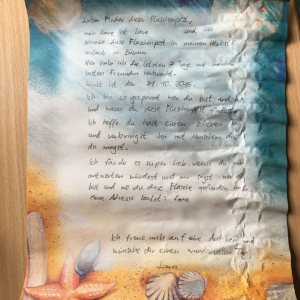 Lieber Finder dieser Flaschenpost,
mein Name ist Lara und ich
schicke diese Flaschenpost in meinem Herbst
urlaub in Büsum.
Hier habe ich die letzten 7 Tage mit meiner
besten Freundin verbracht.
Heute ist der 21.10.2016.
Ich bin so gespannt wer du bist und
und wann du diese Flaschenpost
Ich hoffe du hast einen schönen
und verbringst ihn mit Menschen die
du magst.
Ich fände es super lieb, wenn du mir
antworten würdest und mir sagst wer du
bist und wo du diese Flasche gefunden
Meine Adresse lautet: Lara
Ich freue mich auf eine Antwort und
wünsche dir einen wundervollen Tag
Lara